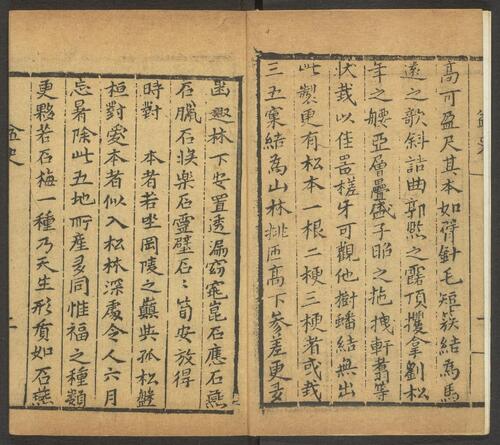 高可盈尺其本如臂針毛短簇結為馬
遠之歌斜詰曲郭熈之露頂攫拿劉松
年之腰亞層疊盛子昭之拖拽軒翥等
狀栽以佳噐槎牙可觀他樹蟠結無出
此製更有松本一根二梗三梗者或栽
三五窠結為山林排匝高下參差更多
幽趣林下安置透漏窈窕崑石應石燕
石臘石將樂石靈璧石石筍安放得
時對 本者若坐岡陵之巔與孤松盤
桓對雙本者似入松林深處令人六月
忘暑除此五地所產多同惟福之種類
更夥若石梅一種乃天生形質如石燕
盆史
二